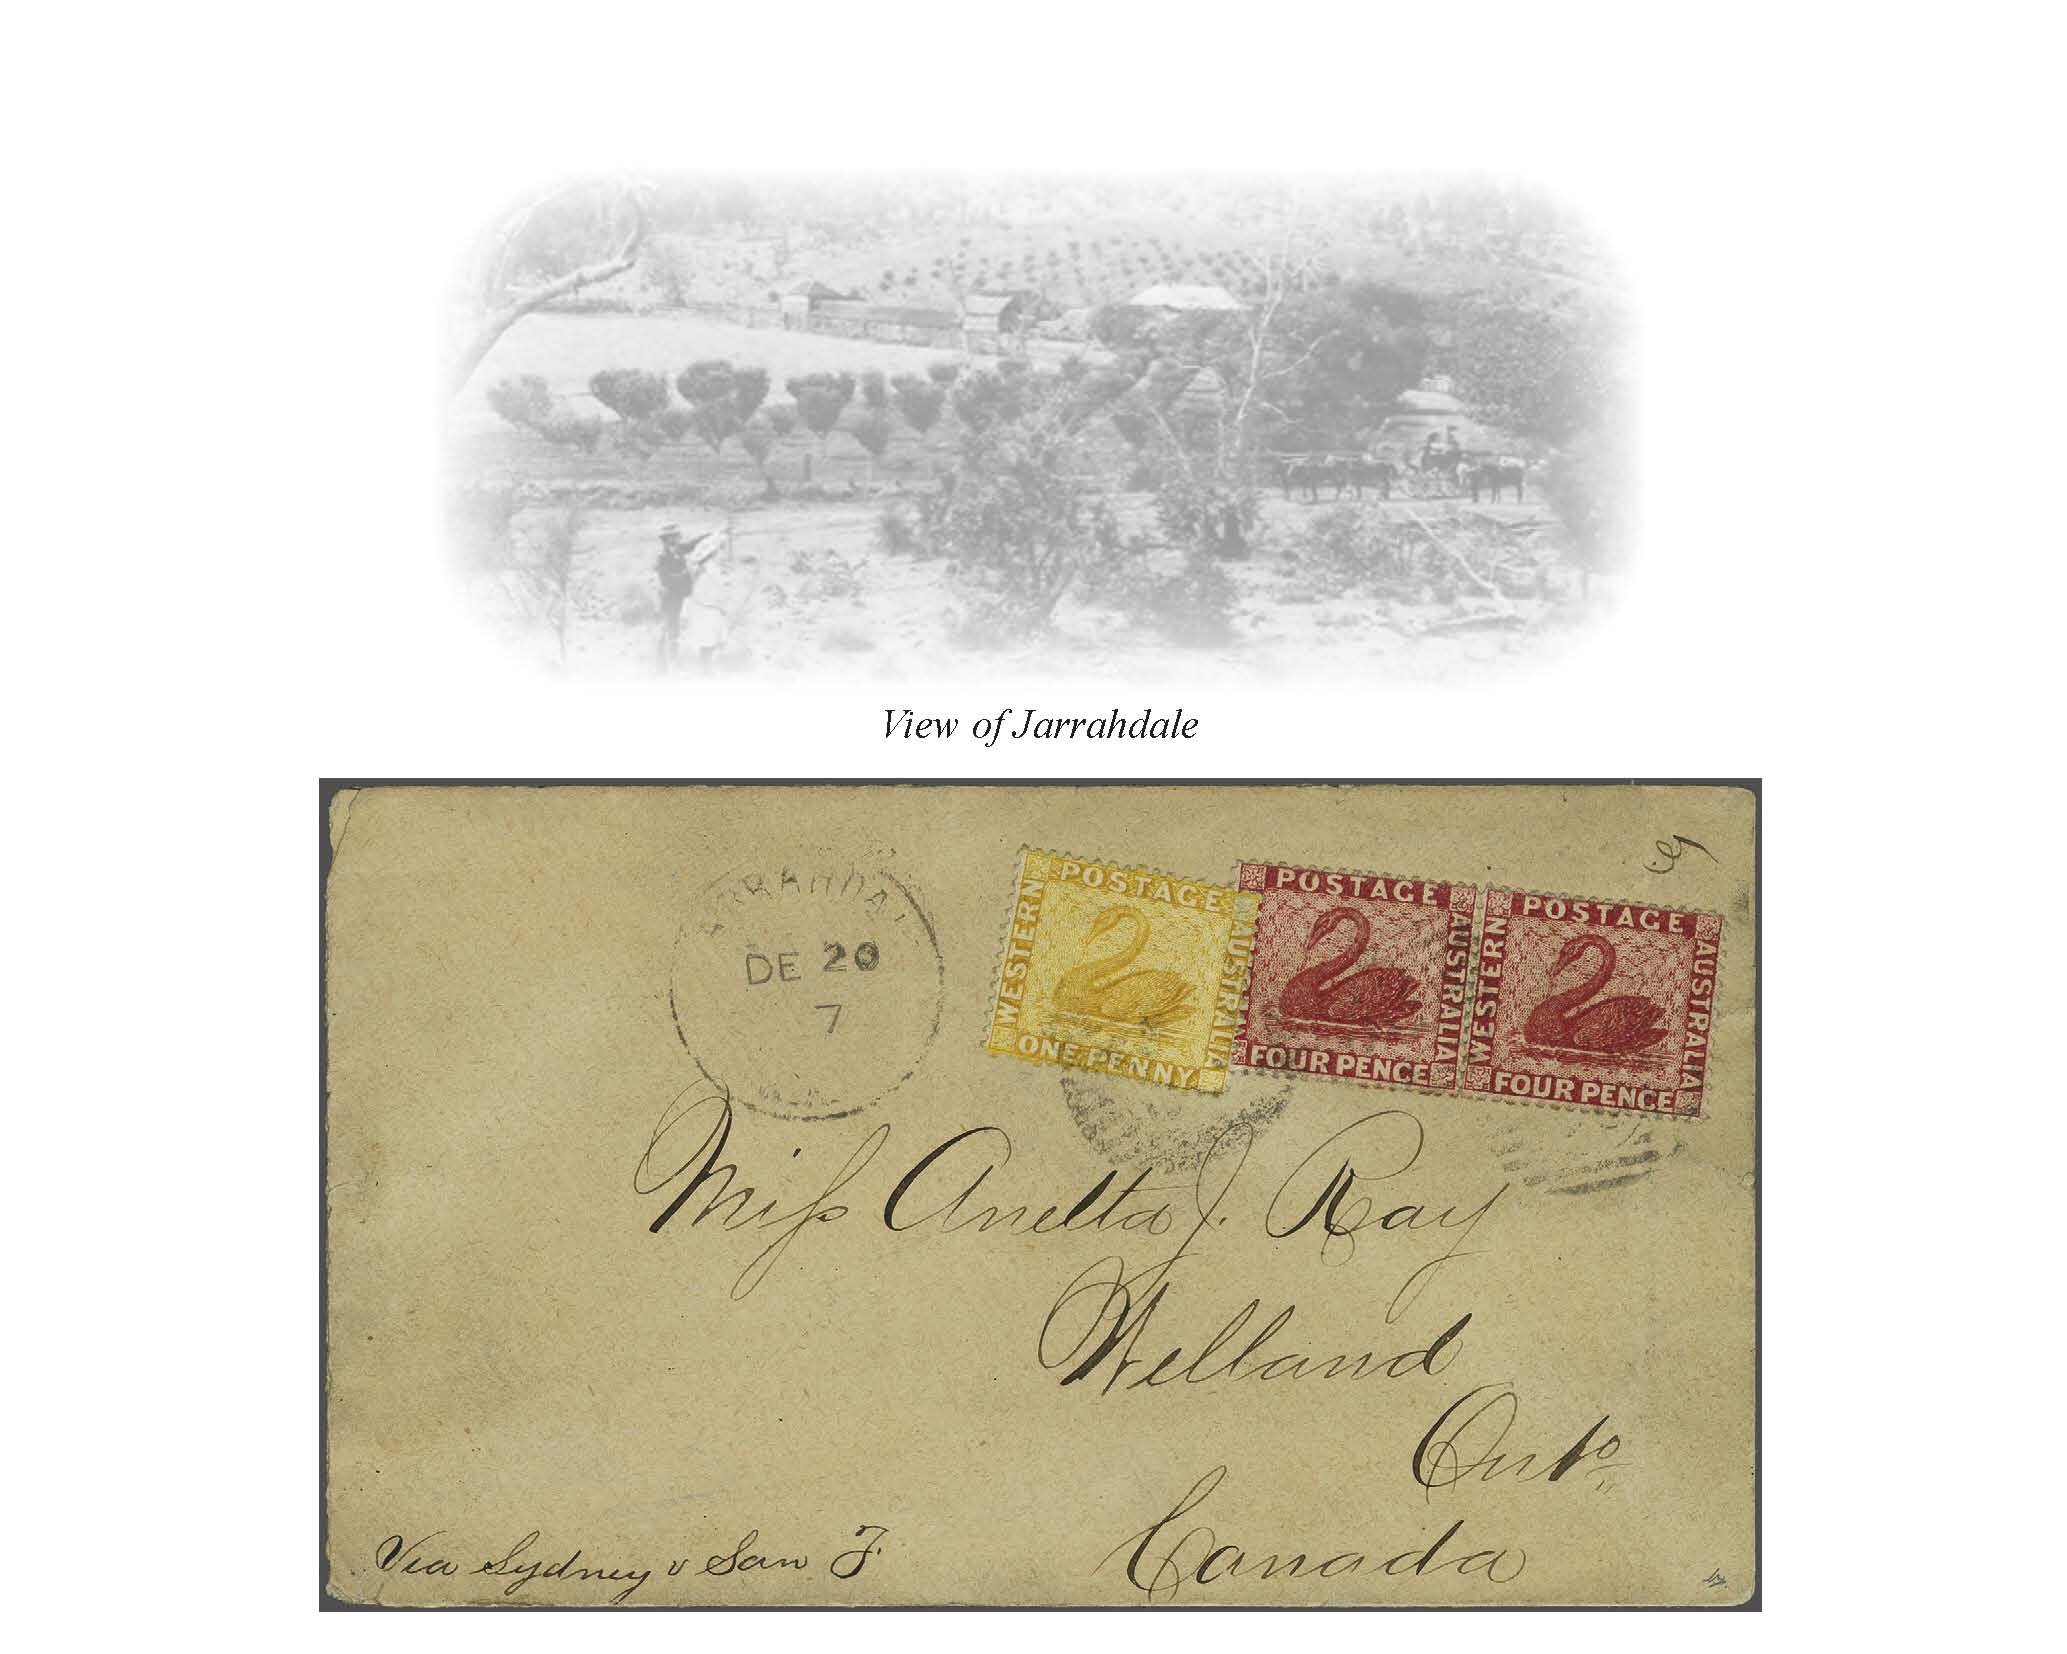 View of Jarrahdale
RRAHDAL
DE 20
7
W.A.
POSTAGE
WESTERN
AUSTRALIA
ONE PENNY
POSTAGE
AUSTRALIA
FOUR PENCE
POSTAGE
WESTERN
AUSTRALIA
FOUR PENCE
Miss Anetta J. Ray
Welland
Onto
Canada
Via Sydney & San F.